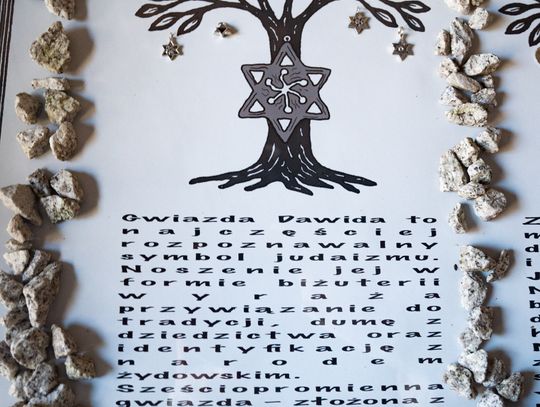 Gwiazda Dawida to
najczęściej
rozpoznawalny
symbol judaizmu.
Noszenie jej w
formie biżuterii
wyraża
przywiązanie do
tradycji, dumę z
dziedzictwa oraz
identyfikację z
narodem
żydowskim.
Sześciopromienna
gwiazda – złożona z